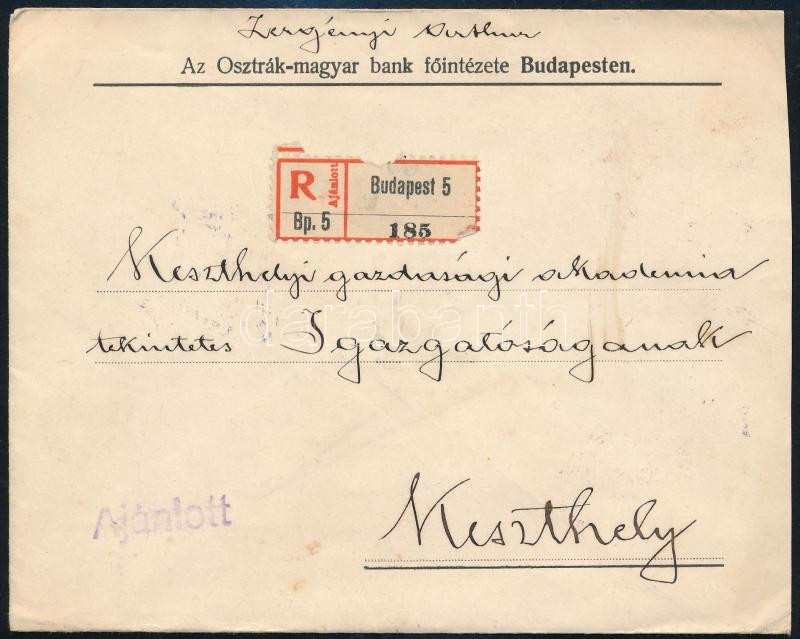 Zergényi Arthur
Az Osztrák-magyar bank főintézete Budapesten.
R Ajánlott Budapest 5
Bp. 5 185
Keszthelyi gazdasági akademia
darabanth
tekintetes Igazgatóságanak
Ajánlott
Keszthely